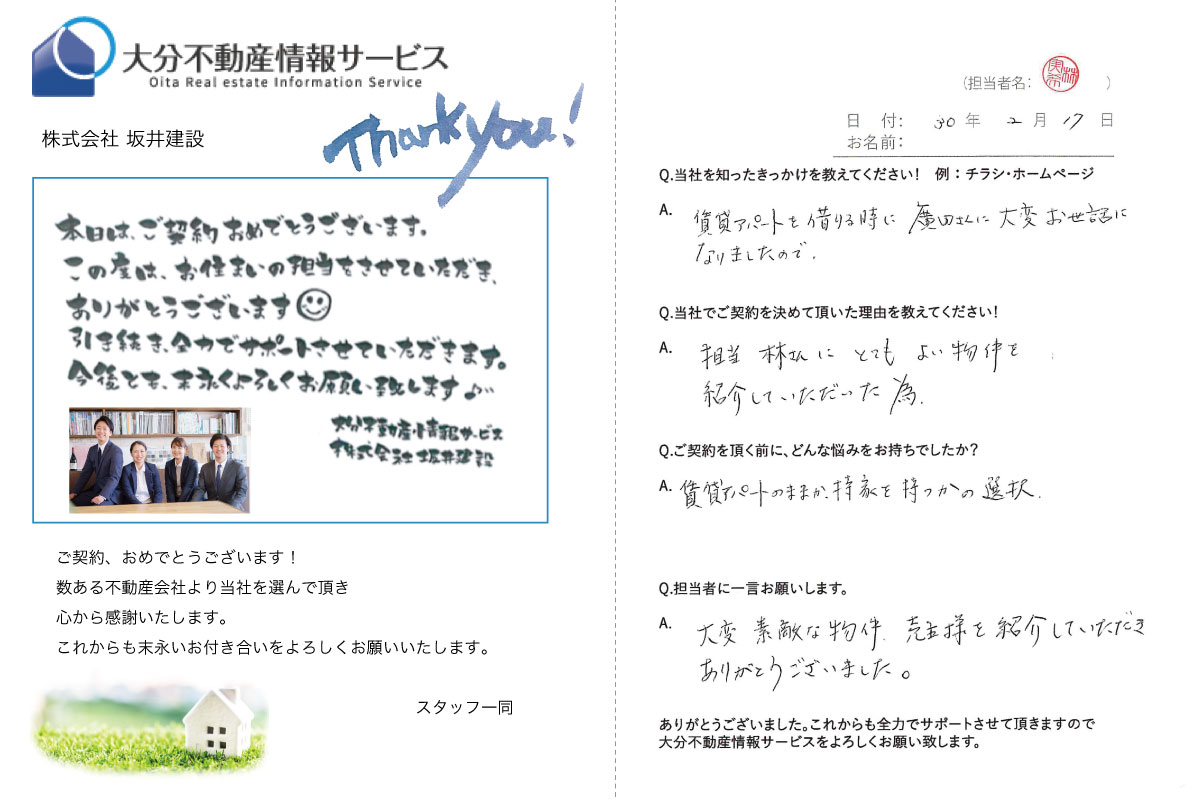 大分不動産情報サービス
Oita Real estate Information Service
株式会社 坂井建設
Thank you!
本日は、ご契約おめでとうございます。
この度は、お住まいの担当をさせていただき、
ありがとうございます
引き続き、全力でサポートさせていただきます。
今後とも、末永くよろしくお願い致します♪
大分不動産情報サービス
株式会社坂井建設
ご契約、おめでとうございます！
数ある不動産会社より当社を選んで頂き
心から感謝いたします。
これからも末永いお付き合いをよろしくお願いいたします。
スタッフ一同
（担当者名: 林 ）
日 付: 30 年 2 月 17 日
お名前:
Q.当社を知ったきっかけを教えてください! 例：チラシ・ホームページ
A. 賃貸アパートを借りる時に 廣田さんに 大変 お世話に
なりましたので.
Q.当社でご契約を決めて頂いた理由を教えてください!
A. 担当 林さんに とても よい物件を
紹介していただだった 為.
Q.ご契約を頂く前に、どんな悩みをお持ちでしたか?
A. 賃貸アパートのままか、持家を持つかの選択.
Q.担当者に一言お願いします。
A. 大変 素敵な物件、売主様を紹介していただき
ありがとうございました。
ありがとうございました。これからも全力でサポートさせて頂きますので
大分不動産情報サービスをよろしくお願い致します。